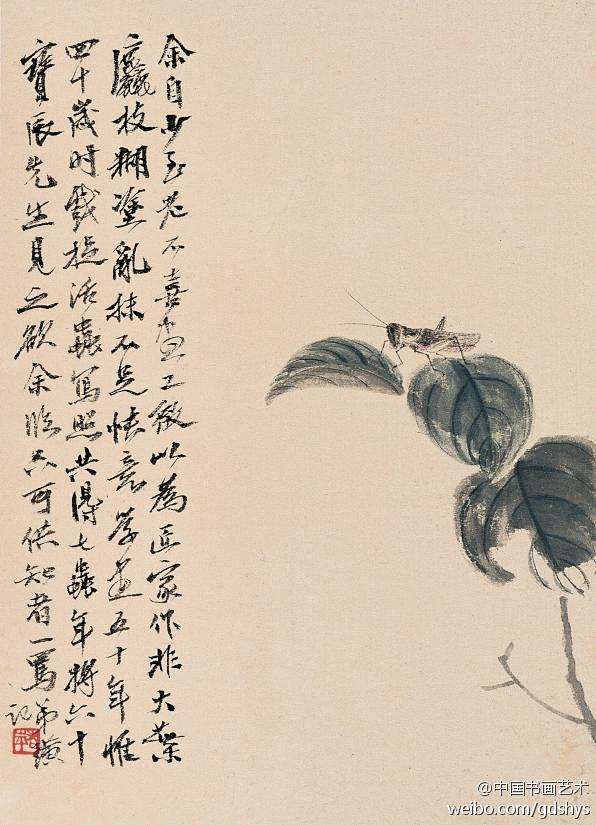 余自少至老不喜畫工致以為匠家作非大葉
麤枝糊塗亂抹不足快意學畫五十年惟
四十歲时戲捉活蟲寫照共得七蟲年將六十
寶辰先生見之欲余臨只可供知者一罵弟璜
記
@中国书画艺术
weibo.com/gdshys